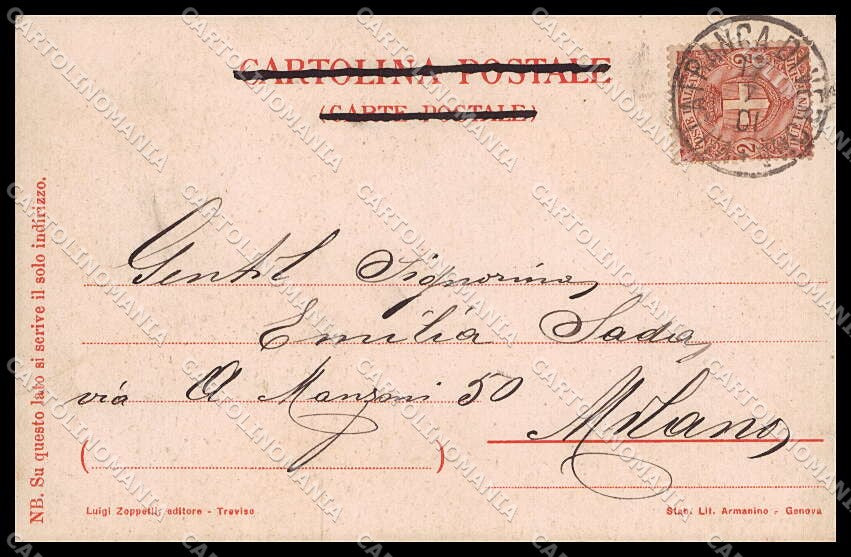 CARTOLINA POSTALE
(CARTE POSTALE)
NB. Su questo lato si scrive il solo indirizzo.
Gentil Signorina
Emilia Sada
via A Manzoni 50
Milano
Luigi Zoppelli, editore - Treviso
Stab. Lit. Armanino - Genova
CARTOLINOMANIA